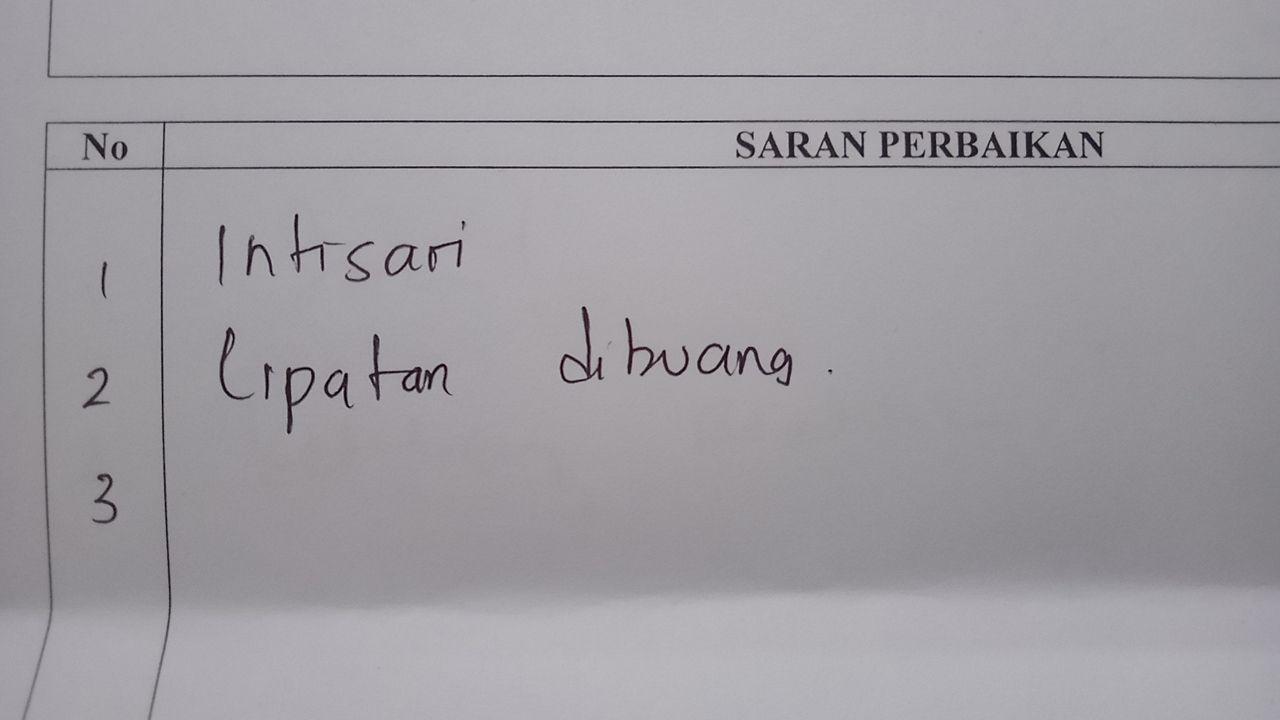 No SARAN PERBAIKAN
1 Intisari
2 Lipatan dibuang.
3